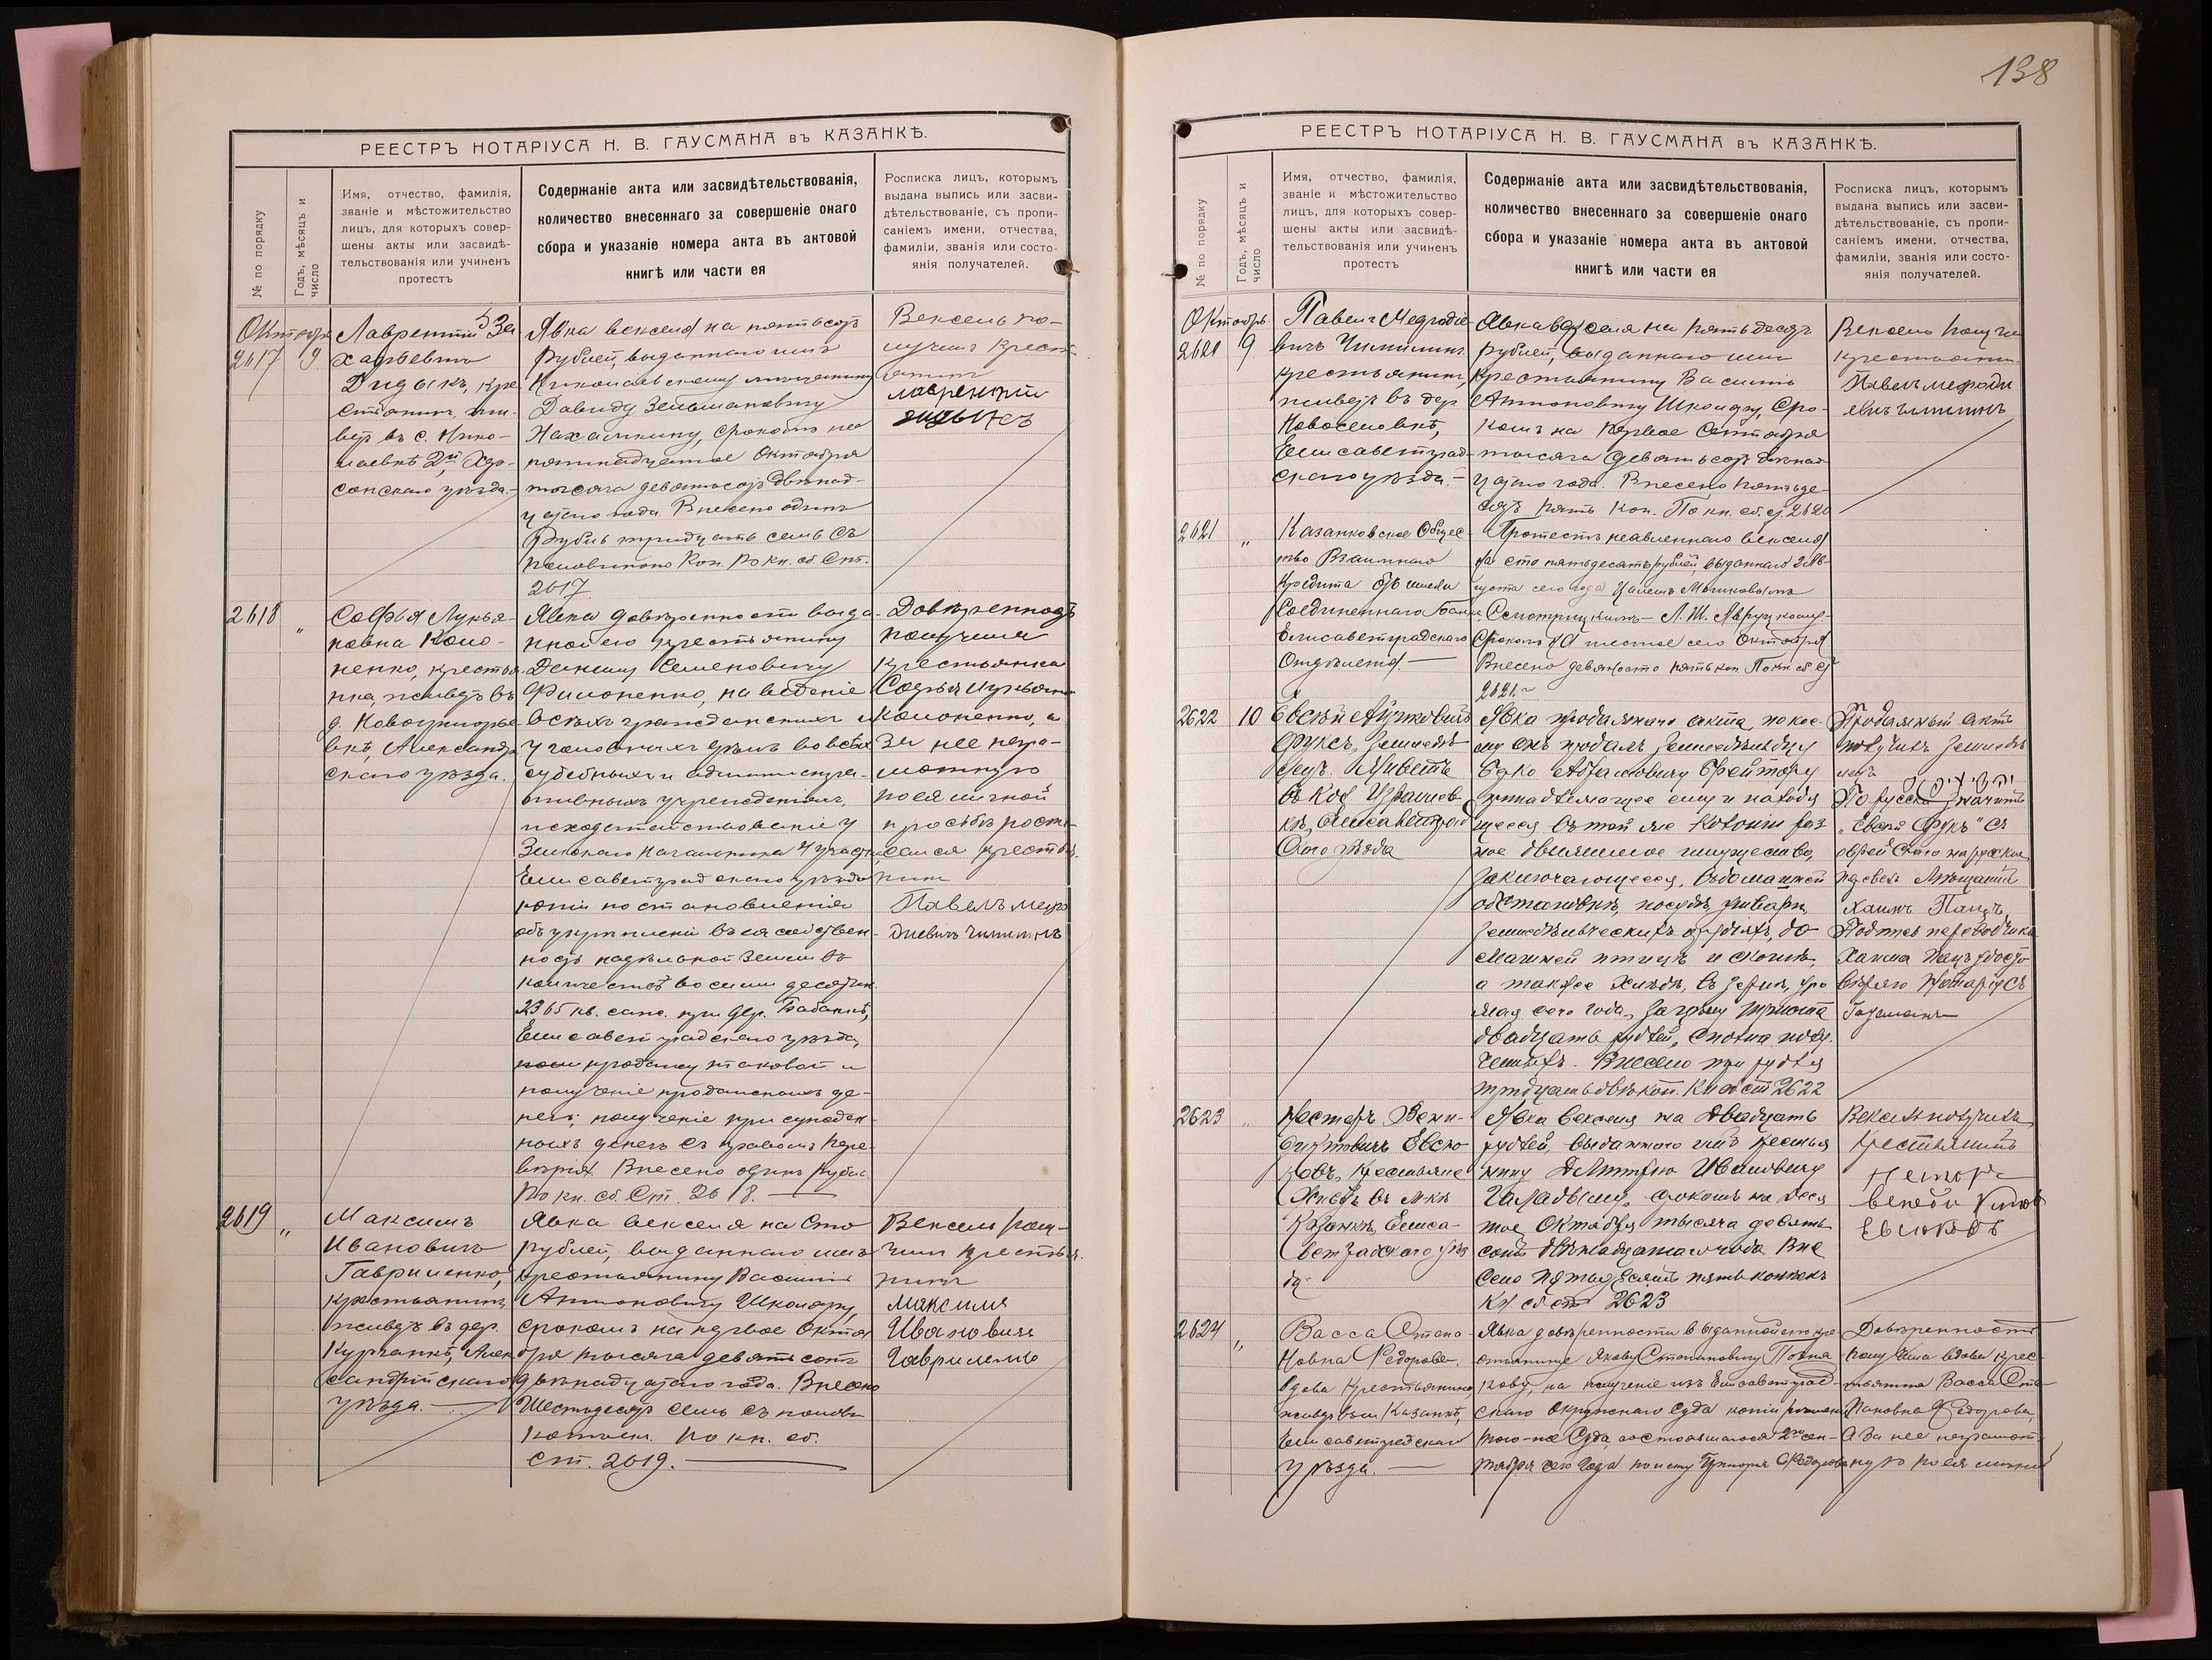 РЕЕСТРЪ НОТАРІУСА Н. В. ГАУСМАНА въ КАЗАНКѢ.
№ по порядку
Годъ, мѣсяцъ и
число
Имя, отчество, фамилія,
званіе и мѣстожительство
лицъ, для которыхъ совер-
шены акты или засвидѣ-
тельствованія или учиненъ
протестъ
Содержаніе акта или засвидѣтельствованія,
количество внесеннаго за совершеніе онаго
сбора и указаніе номера акта въ актовой
книгѣ или части ея
Росписка лицъ, которымъ
выдана выпись или засви-
дѣтельствованіе, съ пропи-
саніемъ имени, отчества,
фамиліи, званія или состо-
янія получателей.
Октября
2617
9
Лаврентій За-
харьевичъ
Дидыкъ, кре-
стьянинъ, жи-
ветъ въ с. Нико-
лаевкѣ 2й, Хер-
сонскаго уѣзда.
Явка векселя на пятьсотъ
рублей, выданнаго имъ
Николаевскому мѣщанину
Давиду Зельмановичу
Нахамкину, срокомъ на
пятнадцатое Октября
тысяча девятьсотъ двѣнад-
цатаго года. Внесено одинъ
рубль тридцать семь съ
половиною коп. По кн. сб. Ст.
2617
Вексель по-
лучилъ крестья-
нинъ
лаврентій
дидыкъ
2618
"
Софья Лукья-
новна Коло-
ненко, крестья-
нка, живетъ въ
д. Новогригорье-
вкѣ, Александрій-
скаго уѣзда.
Явка довѣренности выда-
нной ею крестьянину
Даніилу Семеновичу
Филоненко, на веденіе
всѣхъ гражданскихъ и
уголовныхъ дѣлъ во всѣхъ
судебныхъ и администра-
тивныхъ учрежденіяхъ,
исходатайствованіе у
Земскаго Начальника 4 участка
Елисаветградскаго уѣзда
копіи постановленія
объ укрѣпленіи въ ея собствен-
ность надѣльной земли въ
количествѣ восьми десятин.
2365 кв. саж. при дер. Бабанкѣ,
Елисаветградскаго уѣзда,
продажу таковой и
полученіе продажныхъ де-
негъ; полученіе присужден-
ныхъ денегъ съ правомъ пере-
вѣрія. Внесено одинъ рубль.
По кн. сб. Ст. 2618.
Довѣренность
получила
крестьянка
Софья Лукьяно
Колоненко, а
за нее негра-
мотную
по ея личной
просьбѣ роспи-
сался крестья-
нинъ
Павелъ мефо
диевичъ Чимилинъ
2619
"
Максимъ
Ивановичъ
Гавриленко,
крестьянинъ,
живетъ въ дер.
Курганкѣ, Алек-
сандрійскаго
уѣзда.
Явка векселя на Сто
рублей, выданнаго имъ
крестьянину Василію
Антоновичу Школяру,
срокомъ на первое Октя-
бря тысяча девятьсотъ
двѣнадцатаго года. Внесено
Шестьдесятъ семь съ полов.
копѣек. По кн. сб.
Ст. 2619.
Вексель полу-
чилъ крестья-
нинъ
максимъ
Ивановичъ
Гавриленко
138
РЕЕСТРЪ НОТАРІУСА Н. В. ГАУСМАНА въ КАЗАНКѢ.
№ по порядку
Годъ, мѣсяцъ и
число
Имя, отчество, фамилія,
званіе и мѣстожительство
лицъ, для которыхъ совер-
шены акты или засвидѣ-
тельствованія или учиненъ
протестъ
Содержаніе акта или засвидѣтельствованія,
количество внесеннаго за совершеніе онаго
сбора и указаніе номера акта въ актовой
книгѣ или части ея
Росписка лицъ, которымъ
выдана выпись или засви-
дѣтельствованіе, съ пропи-
саніемъ имени, отчества,
фамиліи, званія или состо-
янія получателей.
Октябрь
2620
9
Павелъ Мефодіе-
вичъ Чимилинъ
крестьянинъ,
живетъ въ дер.
Новоселовкѣ,
Елисаветград-
скаго уѣзда.
Явка векселя на пятьдесят
рублей, выданнаго имъ
крестьянину Василію
Антоновичу Школяру, сро-
комъ на первое Сентября
тысяча девятьсотъ двѣнад-
цатаго года. Внесено пятьде-
сятъ пять коп. По кн. сб. ст. 2620
Вексель получи
крестьянин
Павелъ мефоди
евичъ чимилинъ
2621
"
Казанковское Общес
тво Взаимнаго
Кредита отъ имени
Соединеннаго Банка
Елисаветградскаго
Отдѣленія.
Протестъ неявленнаго векселя
на сто пятьдесятъ рублей, выданнаго 2 Ав-
густа сего года
Л. Ш. Авруцкому
Срокомъ на шестое сего Октября
Внесено девяносто пять коп. По кн. сб. ст.
2621.
2622
10
Евсѣй Ицковичъ
Фуксъ, земледѣ-
лецъ. Живетъ
въ кол. Израилев-
кѣ, Елисаветград
скаго уѣзда
Явка продажнаго акта, по кое-
му онъ продалъ земледѣльцу
Берко Абрамовичу Брейтеру
принадлежащее ему и находя
щееся въ той же колоніи раз-
ное движимое имущество,
заключающееся въ домашней
обстановкѣ, посудѣ, утвари,
земледѣльческихъ орудіяхъ, до-
машней птицѣ и скотѣ,
а также хлѣбѣ, въ зернѣ, уро
жая сего года, за цѣну триста
двадцать рублей, сполна полу-
ченныхъ. Внесено три рубля
тридцать двѣ коп. Кн сб ст 2622
Продажный актъ
получилъ земледѣ
лецъ
По русски значитъ
„Евсѣй Фукъ" съ
еврейскаго на русскій
перевелъ Мѣщанинъ
Хаимъ Пацъ
Подпись переводчика
Хаима Пацъ удосто-
вѣряю Нотаріусъ
Гаусманъ
2623
"
Несторъ Вени-
диктовичъ Евсю-
ковъ, крестьяни
Живетъ въ м-кѣ
Казанкѣ, Елиса-
ветградскаго уѣз
да
Явка векселя на двадцать
рублей, выданнаго имъ крестья
нину Дмитрію Ивановичу
срокомъ на деся
тое Октября тысяча девять-
сотъ двѣнадцатаго года. Вне
сено пятьдесятъ пять копѣекъ
Кн. сб ст 2623
Вексель получилъ
крестьянинъ
Нестор
Евсюковъ
2624
"
Васса Степа-
новна Федорова,
вдова крестьянина,
живетъ въ м. Казанкѣ,
Елисаветградскаго
уѣзда.
Явка довѣренности выданной ею кре-
стьянину Якову Степановичу
на полученіе изъ Елисаветград-
скаго Окружнаго Суда копіи рѣшенія
того-же Суда, состоявшагося 2го сен-
тября сего года по иску Григорія Федорова
Довѣренность
получила вдова крес-
тьянина Васса Сте-
пановна Федорова,
а за нее неграмот-
ную по ея личной